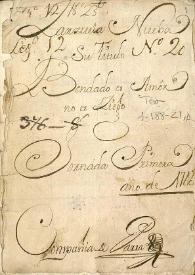 Zarzuela Nueba
Leg. 12 Su Titulo No. 2
Bendado es Amor
no es Ziego
1-188-21
376-8
Jornada Primera
año de
Compañia de Parra